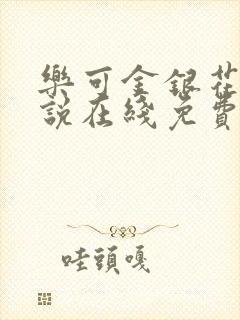 樂可金銀花
說在綫免費
哇頭嘎